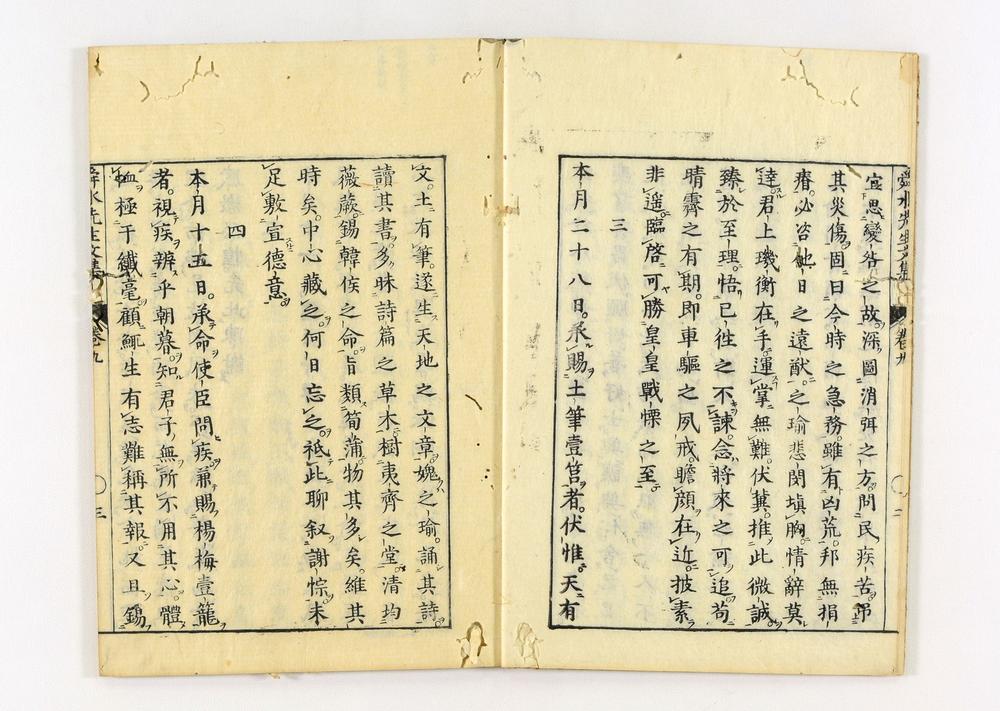 宜思變咎之故深圖消弭之方問民疾苦卹
其災傷固日今時之急務雖有凶荒邦無捐
瘠必咨他日之遠猷之瑜悲閔塡胸情辭莫
達君上璣衡在手運掌無難伏冀推此微誠
臻於至理悟已徃之不諫念將來之可追茍
晴霽之有期即車驅之夙戒瞻顔在近披素
非遥臨啓可勝皇皇戰慄之至
三
本月二十八日承賜土筆壹筥者伏惟天有
舜水先生文集 卷九 二
文土有筆遂生天地之文章媿之瑜誦其詩
讀其書多昧詩篇之草木樹夷齊之堂清均
薇蕨錫韓侯之命肯類筍蒲物其多矣維其
時矣中心藏之何日忘之祗此聊叙謝悰未
足敷宣德意
四
本月十五日承命使臣問疾兼賜楊梅壹籠
者視疾辨乎朝暮知君子無所不用其心體
恤極于纖毫顧鯫生有志難稱其報又且錫
舜水先生文集 卷九 三